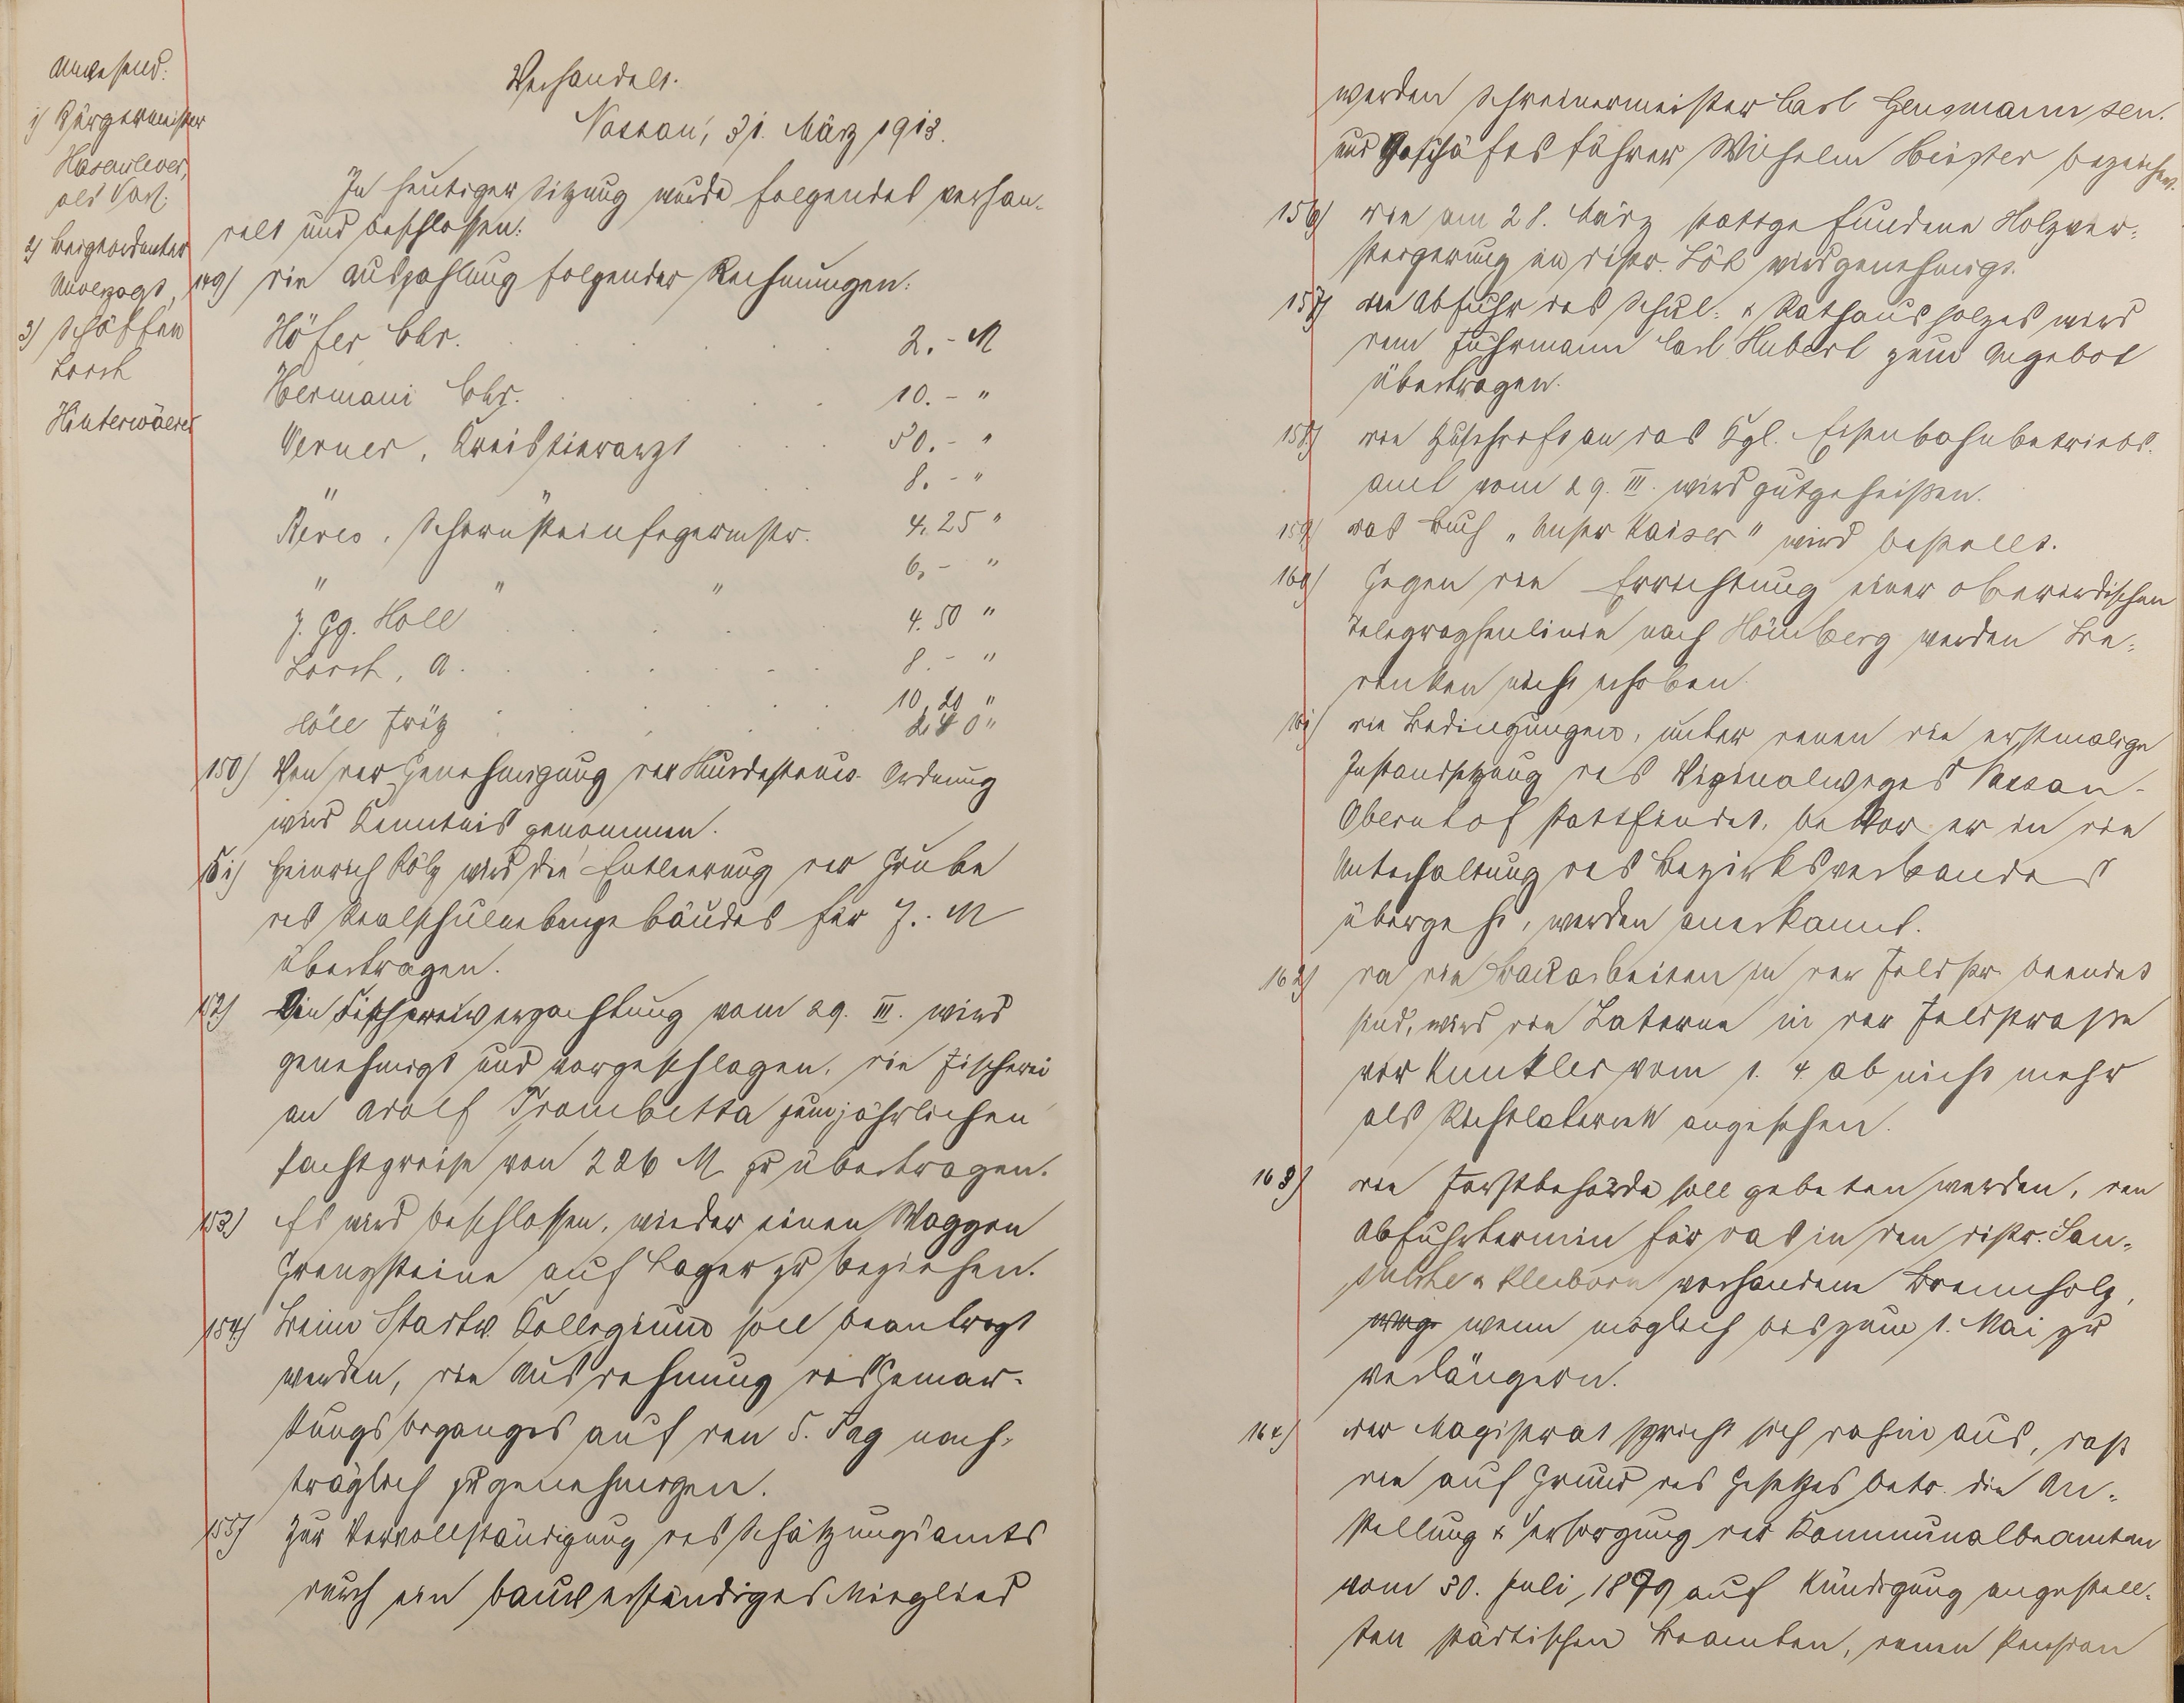 Anwesend:
1) Bürgermeister
Hasenclever,
als Vors.
2) Beigeordneter
Unverzagt,
3) Schöffen
Lorch
Hinterwäller
Verhandelt.
Nassau, 31. März 1913.
In heutiger Sitzung wurde folgendes verhan-
delt und beschlossen:
149) die Auszahlung folgender Rechnungen:
Höfer Chr. 2.- M
Hermani Chr. 10.- "
Werner, Kreistierarzt 50.- "
" " 8.- "
, Schornsteinfegermstr. 4.25 "
" " " 6.- "
J. Gg. Holl 4.50 "
Lorch, A. 8.- "
10,20 "
Höll Fritz 2.40 "
150) Von der Genehmigung der Hundesteuer-Ordnung
wird Kenntnis genommen.
151) Heinrich Költz wird die Entleerung der Grube
des Realschulnebengebäudes für 7.- M
übertragen.
152) Die Fischereiverpachtung vom 29. III. wird
genehmigt und vorgeschlagen, die Fischerei
an Adolf Trombetta zum jährlichen
Pachtpreise von 226 M zu übertragen.
153) Es wird beschlossen, wieder einen Waggon
Grenzsteine auf Lager zu beziehen.
154) Beim Stadtv. Kollegium soll beantragt
werden, die Ausdehnung des Gemar-
kungsbeganges auf den 5. Tag nach-
träglich zu genehmigen.
155) Zur Vervollständigung des Schätzungsamts
durch ein bauverständiges Mitglied
werden Schreinermeister Carl Heusmann sen.
und Geschäftsführer Wilhelm bezeichnet.
156) die am 28. März stattgefundene Holzver-
steigerung in Distr. Löh wird genehmigt.
157) die Abfuhr des Schul- & Rathausholzes wird
dem Fuhrmann Carl Hubert zum Angebot
übertragen.
158) die Zuschrift an das Kgl. Eisenbahnbetriebs-
amt vom 29. III. wird gutgeheißen.
159) das Buch „Unser Kaiser" wird bestellt.
160) Gegen die Errichtung einer oberirdischen
Telegraphenlinie nach Hömberg werden Be-
denken nicht erhoben.
161) die Bedingungen, unter denen die erstmalige
Instandsetzung des Vizinalweges Nassau-
Obernhof stattfindet, bevor er in die
Unterhaltung des Bezirksverbandes
übergeht, werden anerkannt.
162) da die Bauarbeiten in der Feldstr. beendet
sind, wird die Laterne in der Feldstraße
vor Kunkler vom 1. 4. ab nicht mehr
als Richtlaterne angesehen.
163) die Forstbehörde soll gebeten werden, den
Abfuhrtermin für das in den Distr. Lan-
& Kleiborn vorhandene Brennholz,
wenn möglich bis zum 1. Mai zu
verlängern.
164) der Magistrat spricht sich dahin aus, daß
die auf Grund des Gesetzes betr. die An-
stellung & Versorgung der Kommunalbeamten
vom 30. Juli 1899 auf Kündigung angestell-
ten städtischen Beamten, denen Pension